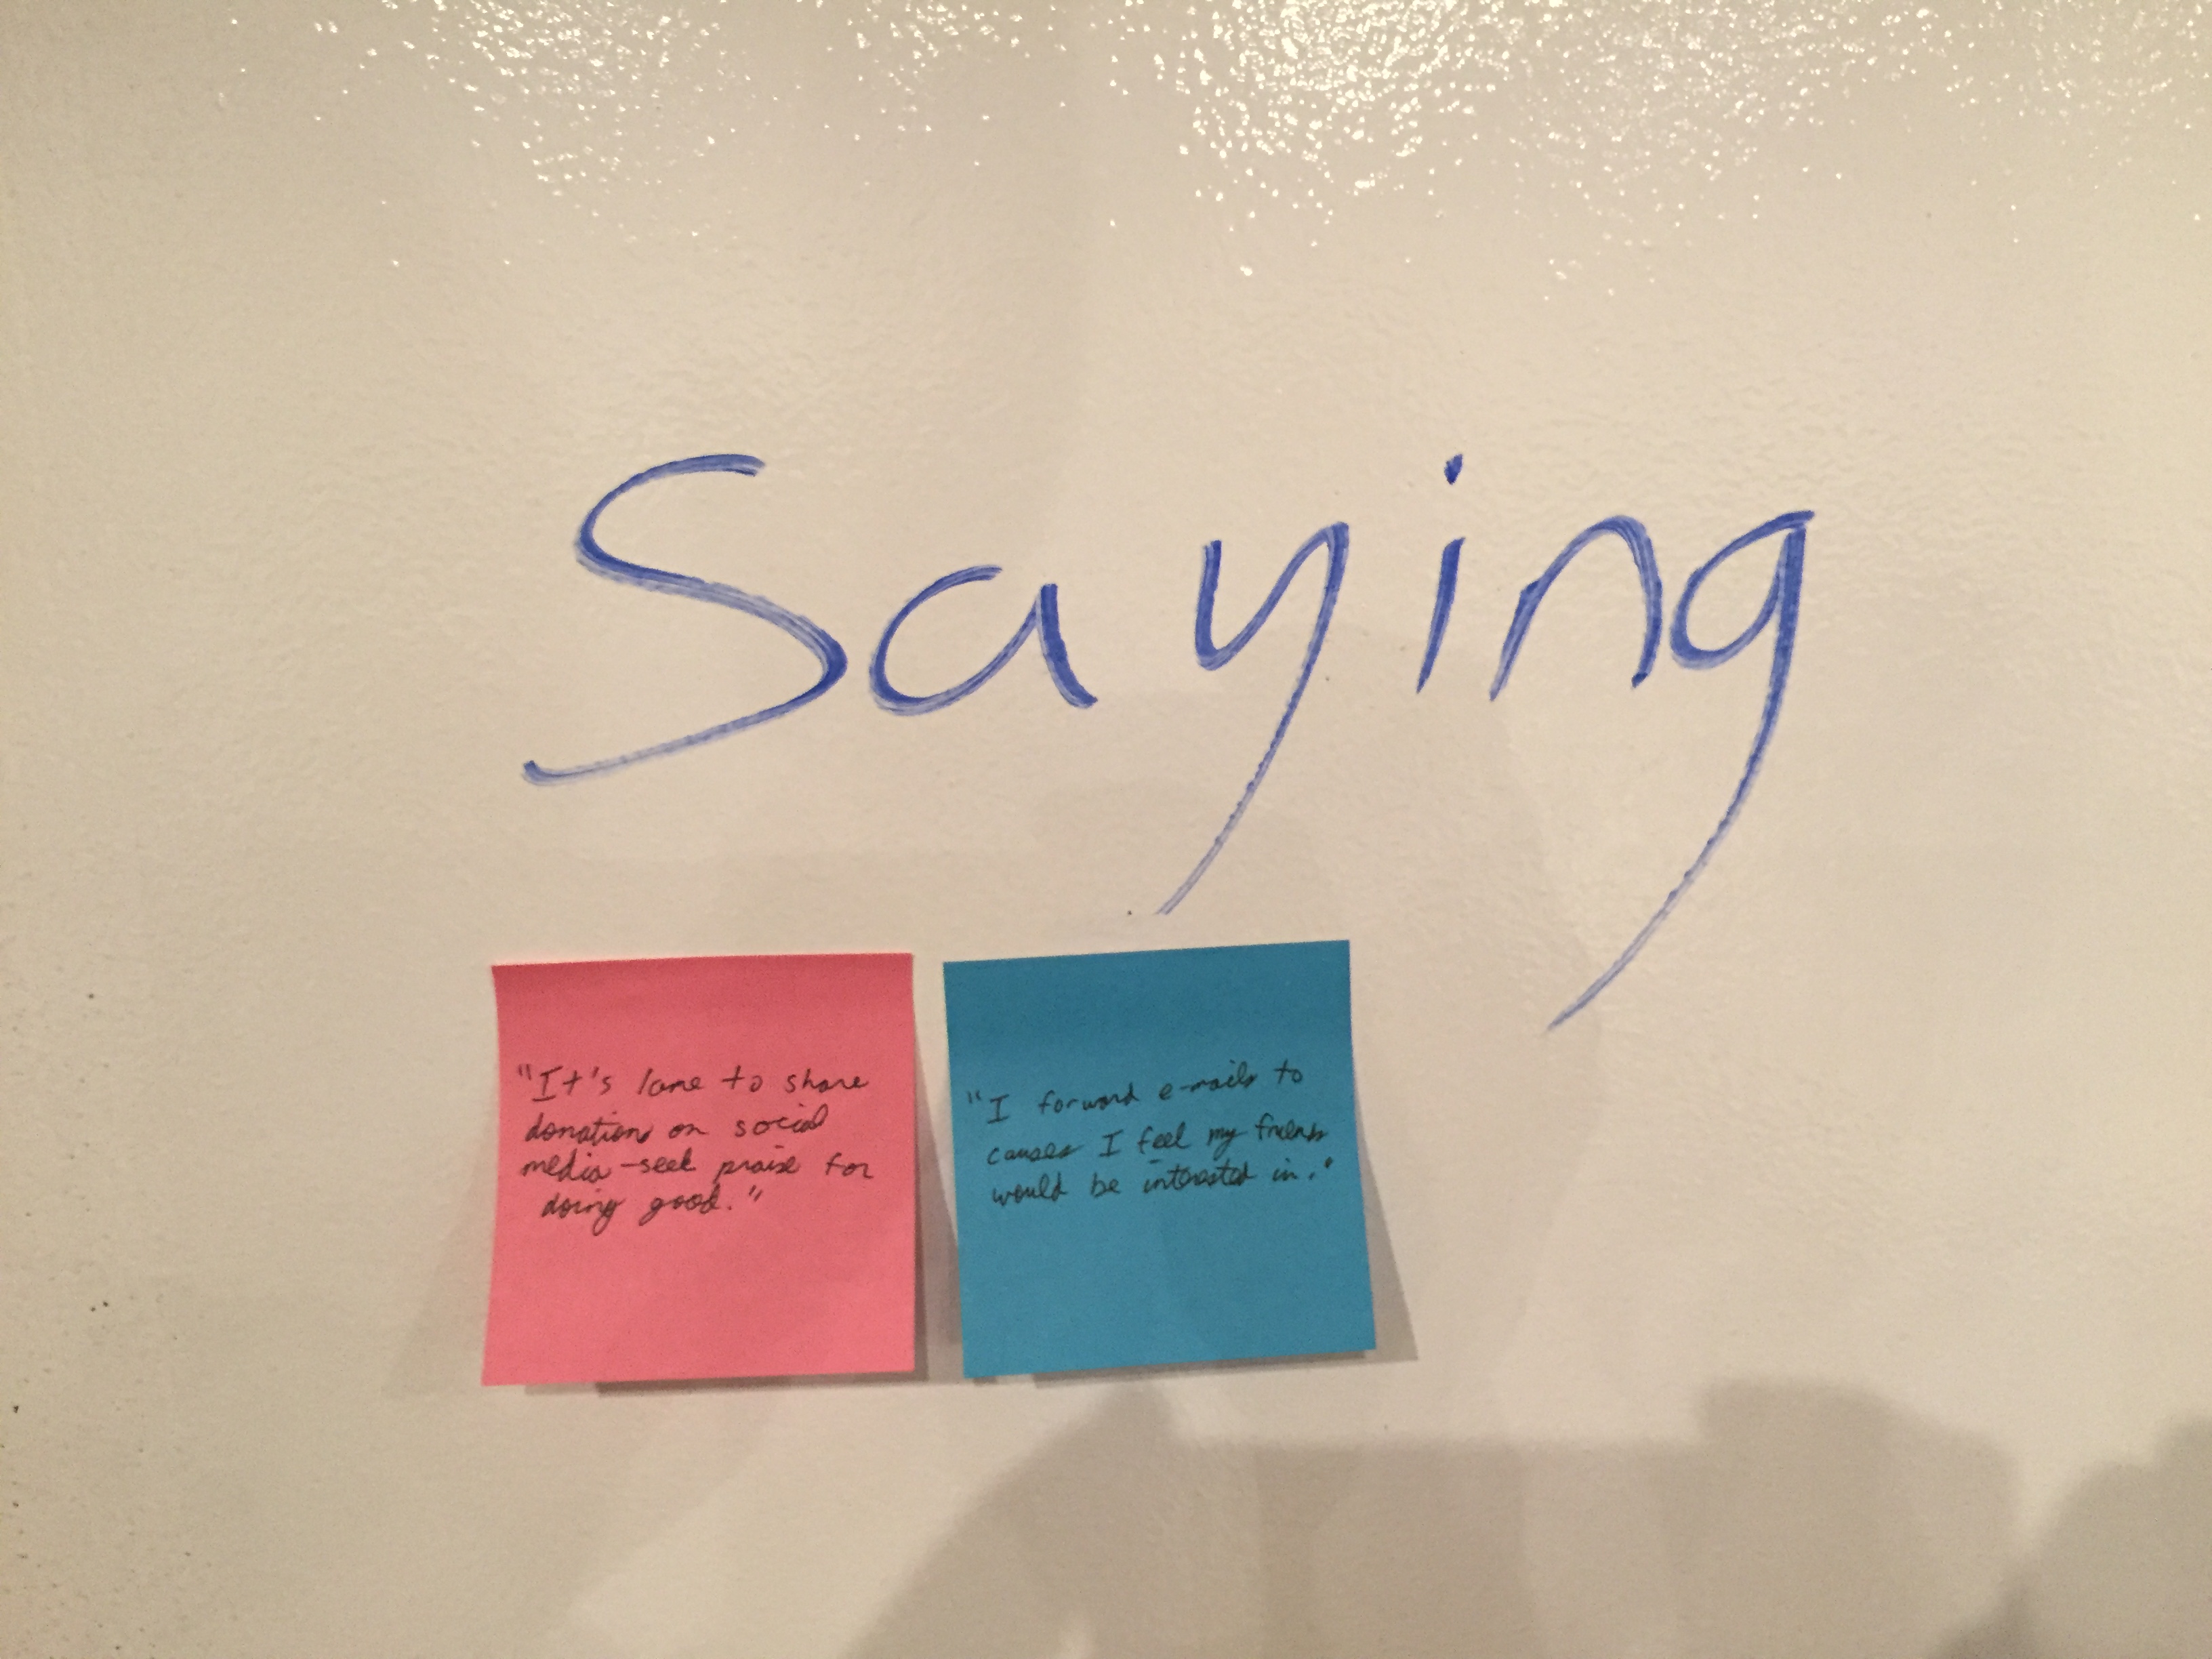 Saying
"It's lame to share
donations on social
media - seek praise for
doing good."
"I forward e-mails to
causes I feel my friends
would be interested in."